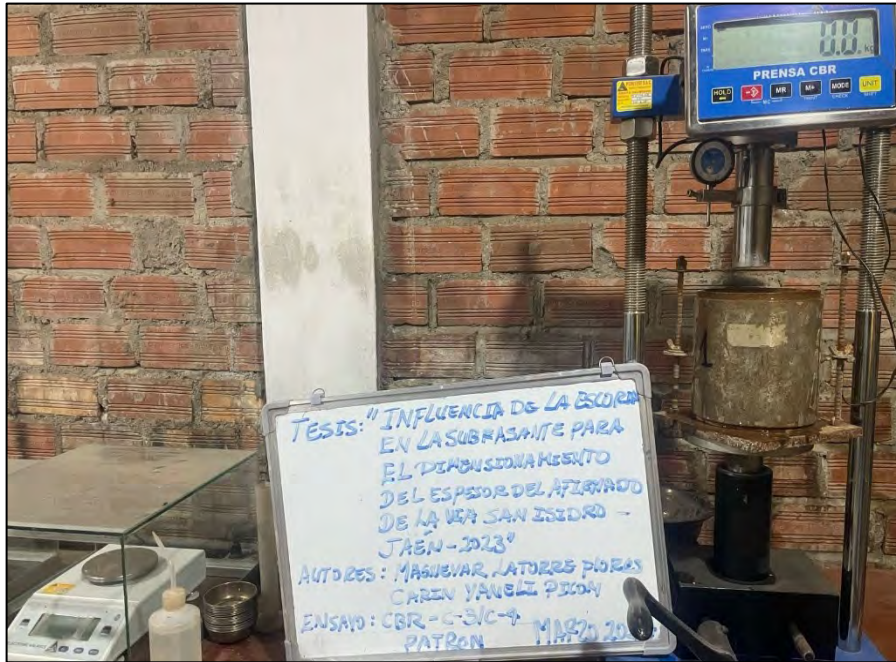 0.0 kg
PRENSA CBR
HOLD
MR
M+
MODE
UNIT
1
TESIS: "INFLUENCIA DE LA ESCORIA
EN LA SUBRASANTE PARA
EL DIMENSIONAMIENTO
DEL ESPESOR DEL AFIRMADO
DE LA VIA SAN ISIDRO -
JAÉN - 2023"
AUTORES: LATORRE
CARIN YANELI PICON
ENSAYO: CBR - C-3/C-4
PATRON MARZO